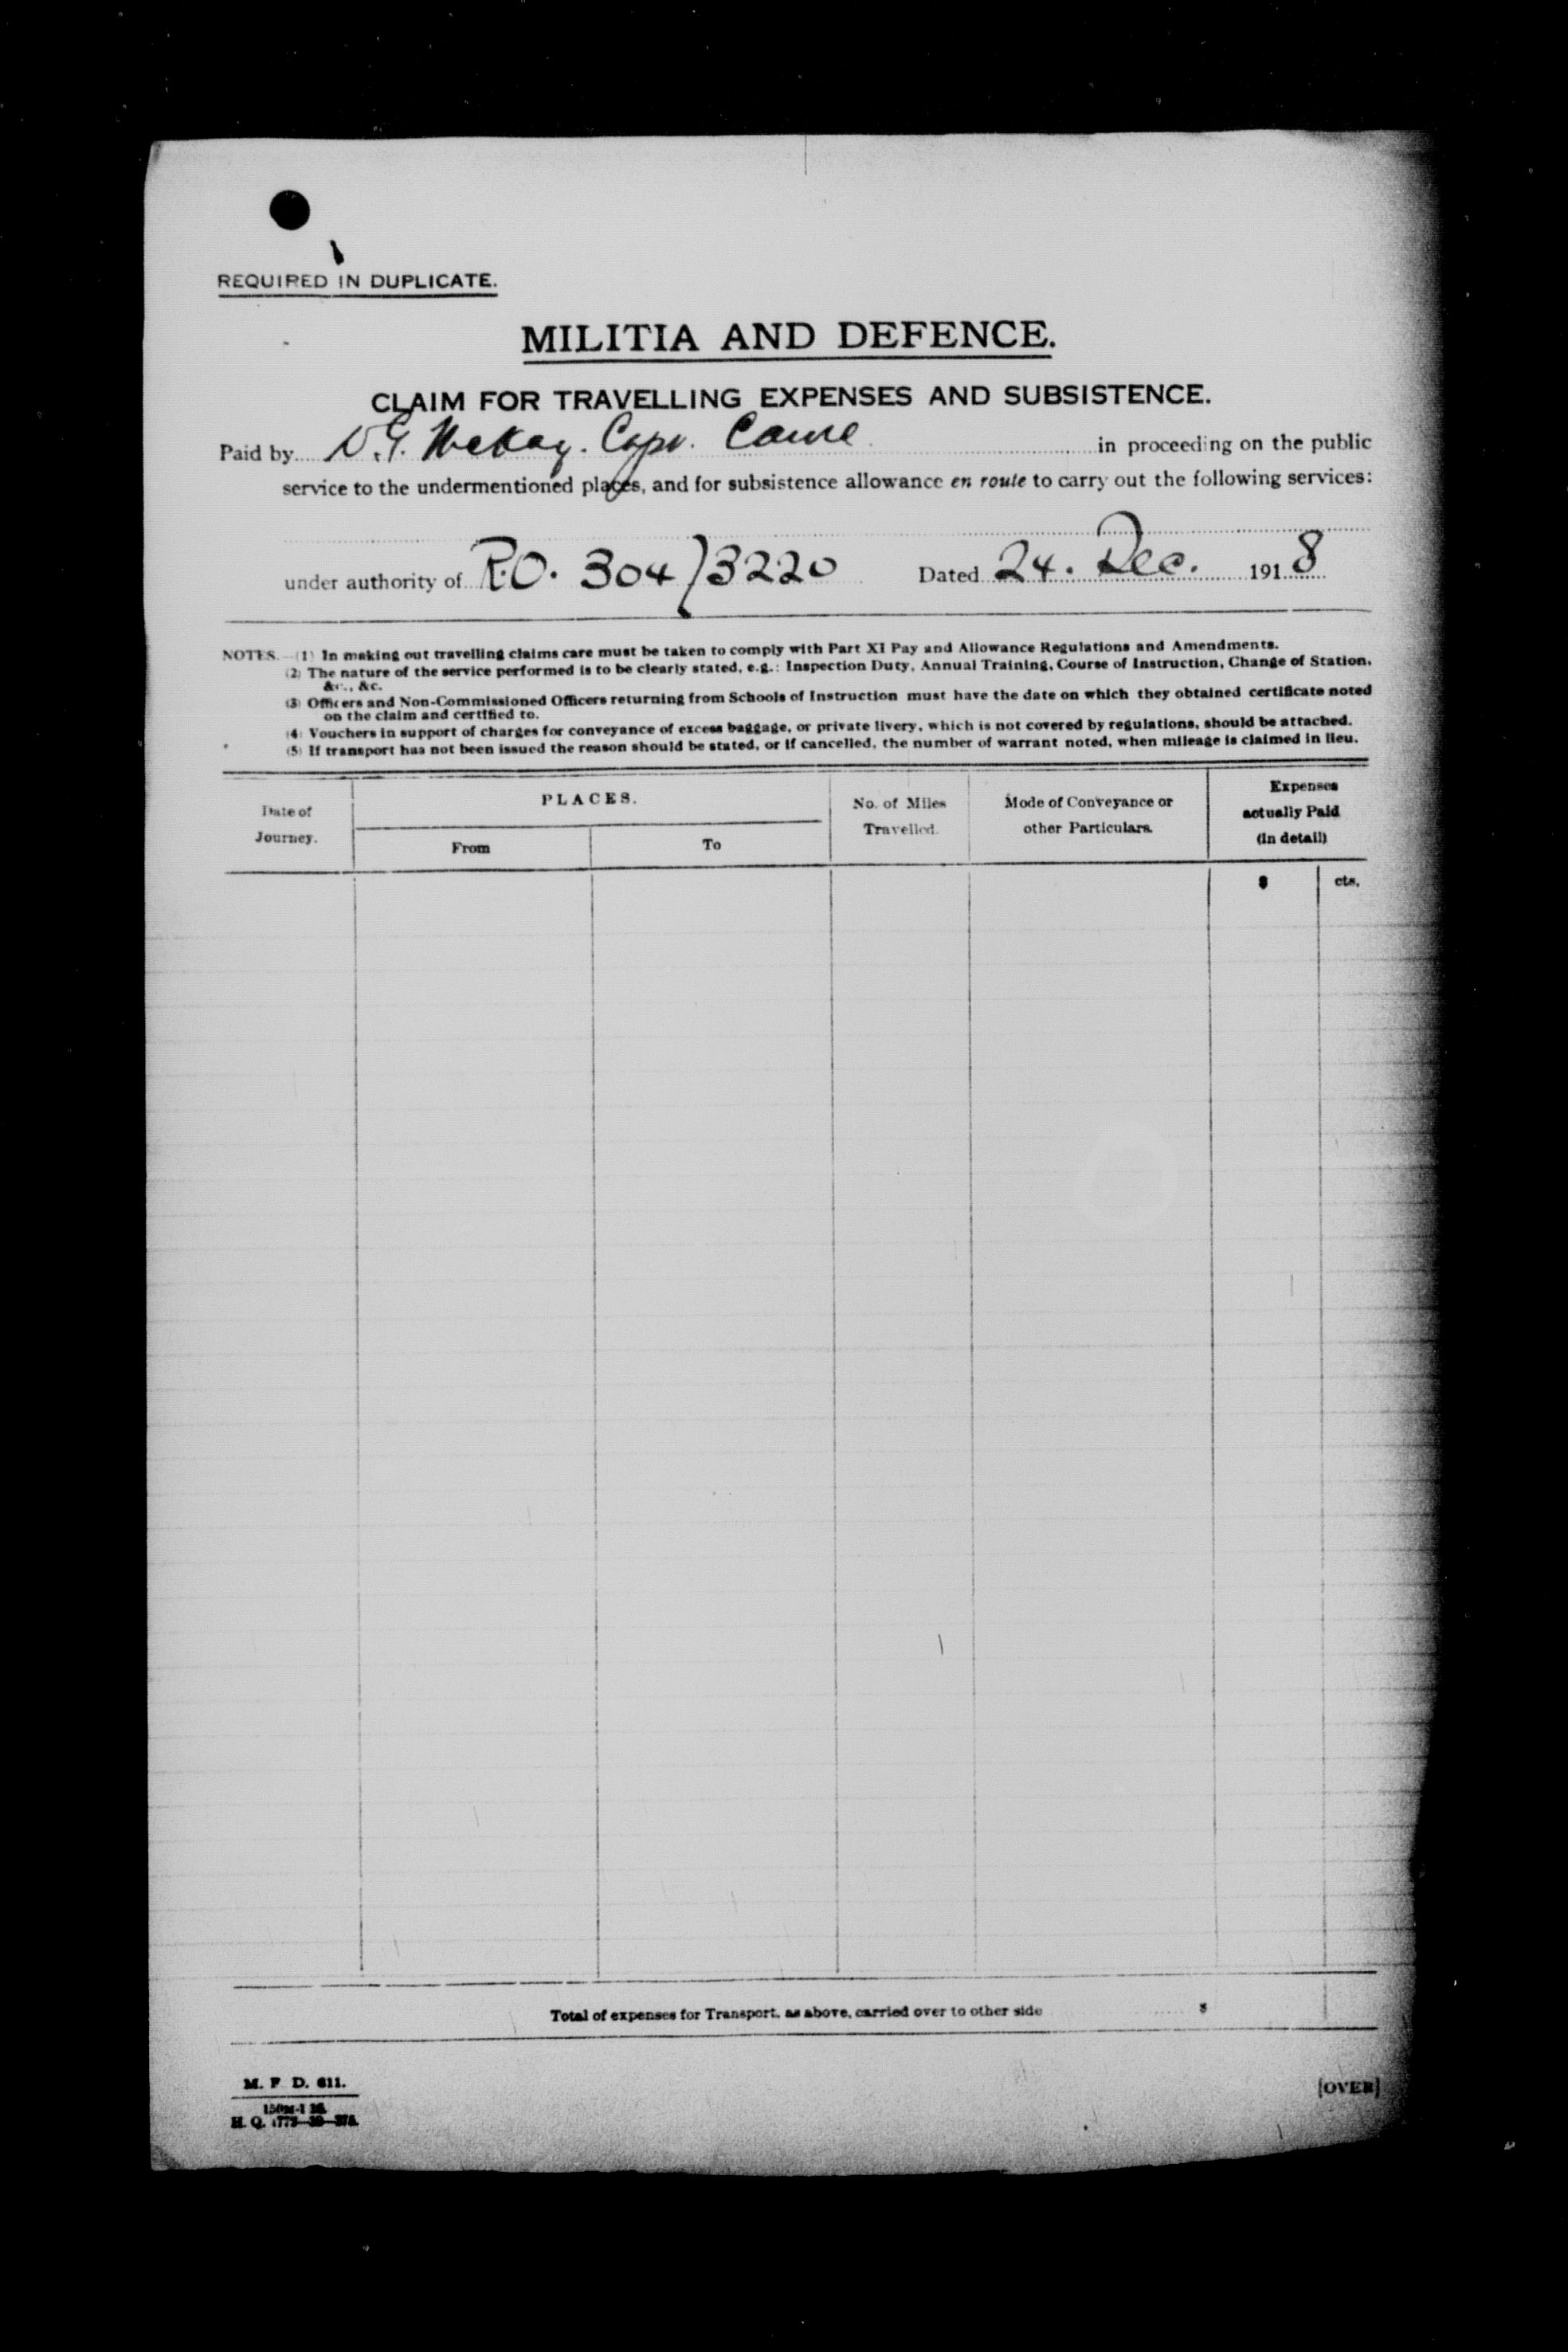 REQUIRED IN DUPLICATE.
MILITIA AND DEFENCE.
CLAIM FOR TRAVELLING EXPENSES AND SUBSISTENCE.
Paid by McKay. Capt. in proceeding on the public
service to the undermentioned places, and for subsistence allowance en route to carry out the following services:
under authority of R.O. 304/3220 Dated 24. Dec. 1918
NOTES.—(1) In making out travelling claims care must be taken to comply with Part XI Pay and Allowance Regulations and Amendments.
(2) The nature of the service performed is to be clearly stated, e.g.: Inspection Duty, Annual Training, Course of Instruction, Change of Station,
&c., &c.
(3) Officers and Non-Commissioned Officers returning from Schools of Instruction must have the date on which they obtained certificate noted
on the claim and certified to.
(4) Vouchers in support of charges for conveyance of excess baggage, or private livery, which is not covered by regulations, should be attached.
(5) If transport has not been issued the reason should be stated, or if cancelled, the number of warrant noted, when mileage is claimed in lieu.
Date of
Journey.
PLACES.
From
To
No. of Miles
Travelled.
Mode of Conveyance or
other Particulars.
Expenses
actually Paid
(in detail)
$ cts.
Total of expenses for Transport, as above, carried over to other side $
M. F. D. 611.
H. Q.
[OVER]